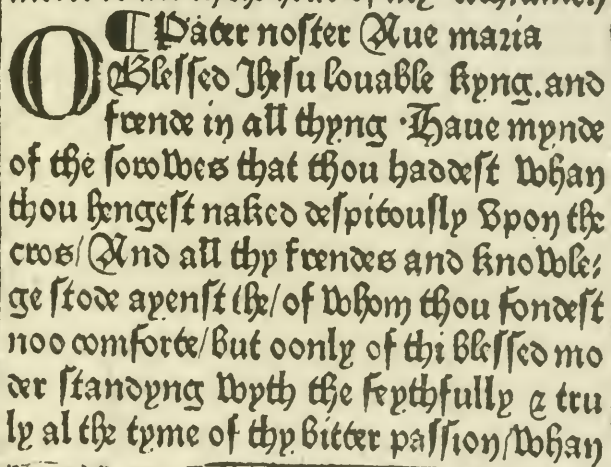 ¶ Pater noster Aue maria
O Blessed Jhesu louable kyng. and
frende in all thyng · Haue mynde
of the sorowes that thou haddest whan
thou hengest naked despitously vpon the
cros/ And all thy frendes and knowle⸗
ge stode ayenst the/ of whom thou fondest
noo comforte/ but oonly of thi blessed mo
der standyng wyth the feythfully & tru
ly al the tyme of thy bitter passion/ whan